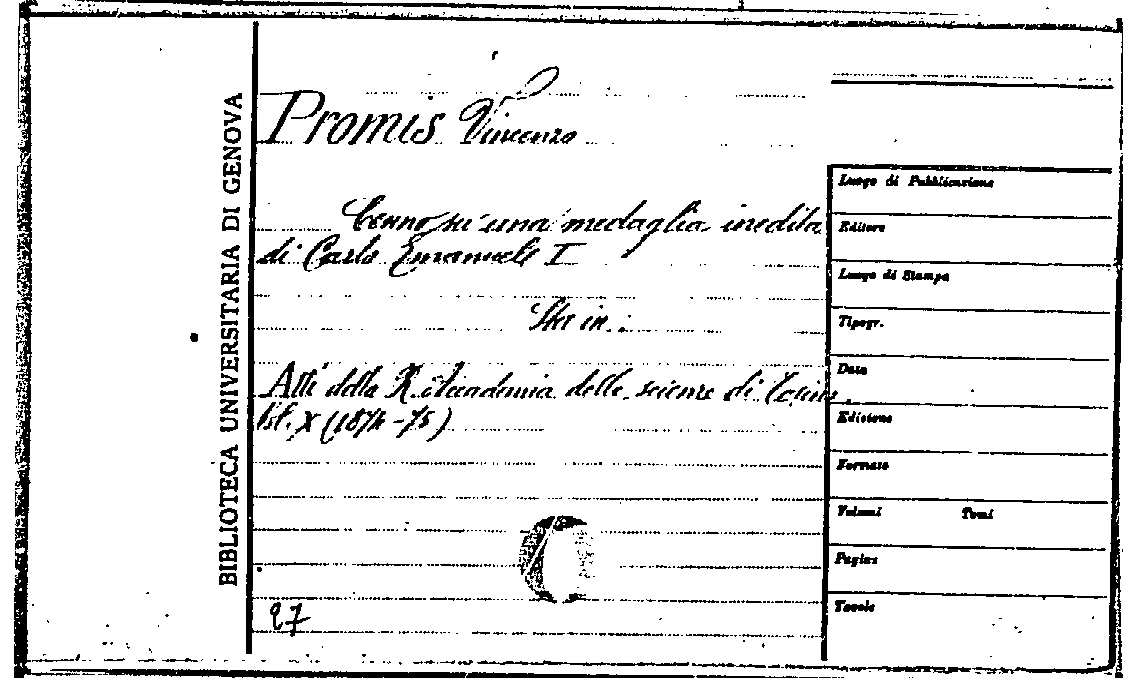 BIBLIOTECA UNIVERSITARIA DI GENOVA
Promis Vincenzo
Cenno su una medaglia inedita
di Carlo Emanuele I
Sta in:
Atti della R. Accademia delle scienze di Torino
Vol. X (1874-75)
27
Luogo di Pubblicazione
Editore
Luogo di Stampa
Tipogr.
Data
Edizione
Formato
Volumi Tomi
Pagine
Tavole